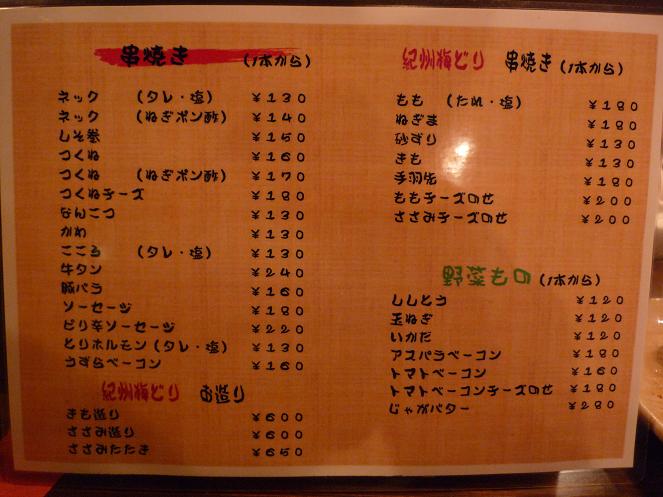 串焼き (1本から)
ネック (タレ・塩) ¥130
ネック (ねぎポン酢) ¥140
しそ巻 ¥150
つくね ¥160
つくね (ねぎポン酢) ¥170
つくねチーズ ¥180
なんこつ ¥130
かわ ¥130
こころ (タレ・塩) ¥130
牛タン ¥240
豚バラ ¥160
ソーセージ ¥180
ピリ辛ソーセージ ¥220
とりホルモン(タレ・塩) ¥130
うずらベーコン ¥160
紀州梅どり お造り
きも造り ¥600
ささみ造り ¥600
ささみたたき ¥650
紀州梅どり 串焼き (1本から)
もも (たれ・塩) ¥180
ねぎま ¥180
砂ずり ¥130
きも ¥130
手羽先 ¥180
ももチーズのせ ¥200
ささみチーズのせ ¥200
野菜もの (1本から)
ししとう ¥120
玉ねぎ ¥120
いかだ ¥120
アスパラベーコン ¥180
トマトベーコン ¥160
トマトベーコンチーズのせ ¥180
じゃがバター ¥280